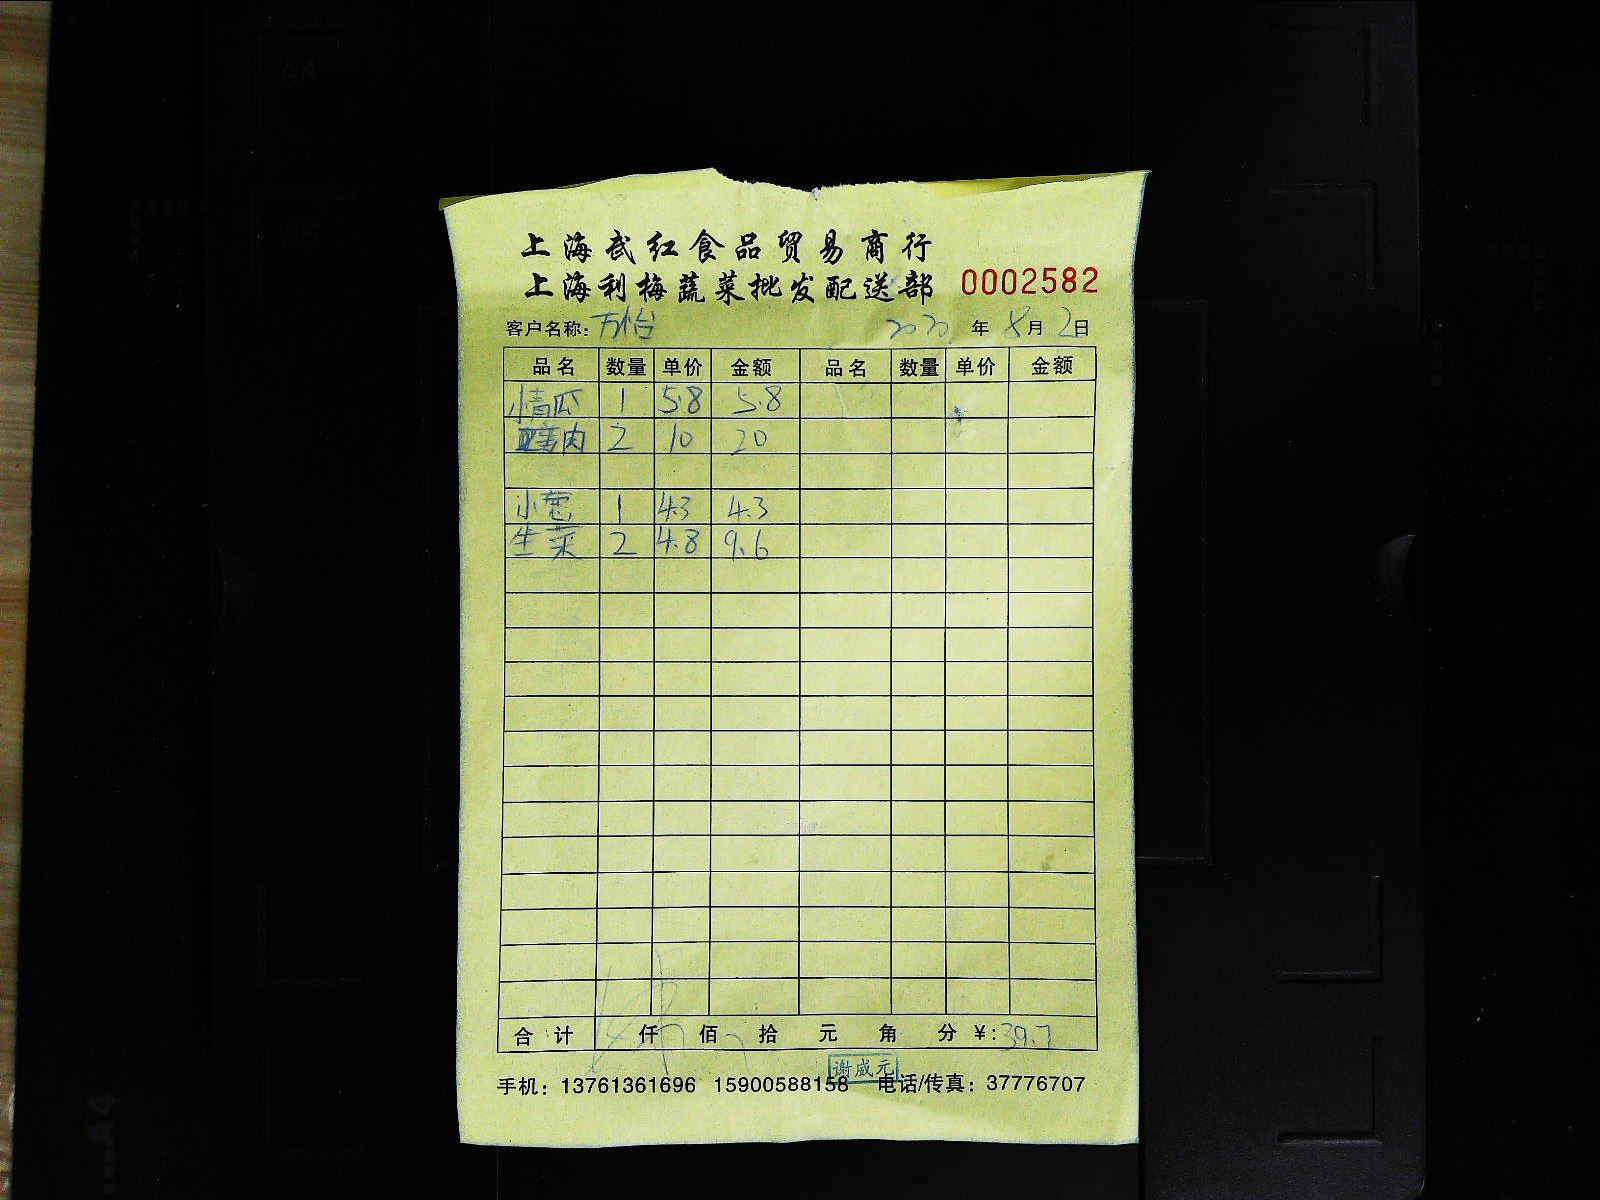 上海武红食品贸易商行
上海利梅蔬菜批发配送部 0002582
客户名称：万怡 2020 年 8 月 2 日
品名 数量 单价 金额 品名 数量 单价 金额
小青瓜 1 5.8 5.8
肉 2 10 20
小葱 1 4.3 4.3
生菜 2 4.8 9.6
合计 仟 佰 拾 元 角 分 ¥:39.7
谢威元
手机：13761361696 15900588158 电话/传真：37776707
A4
A5
A4